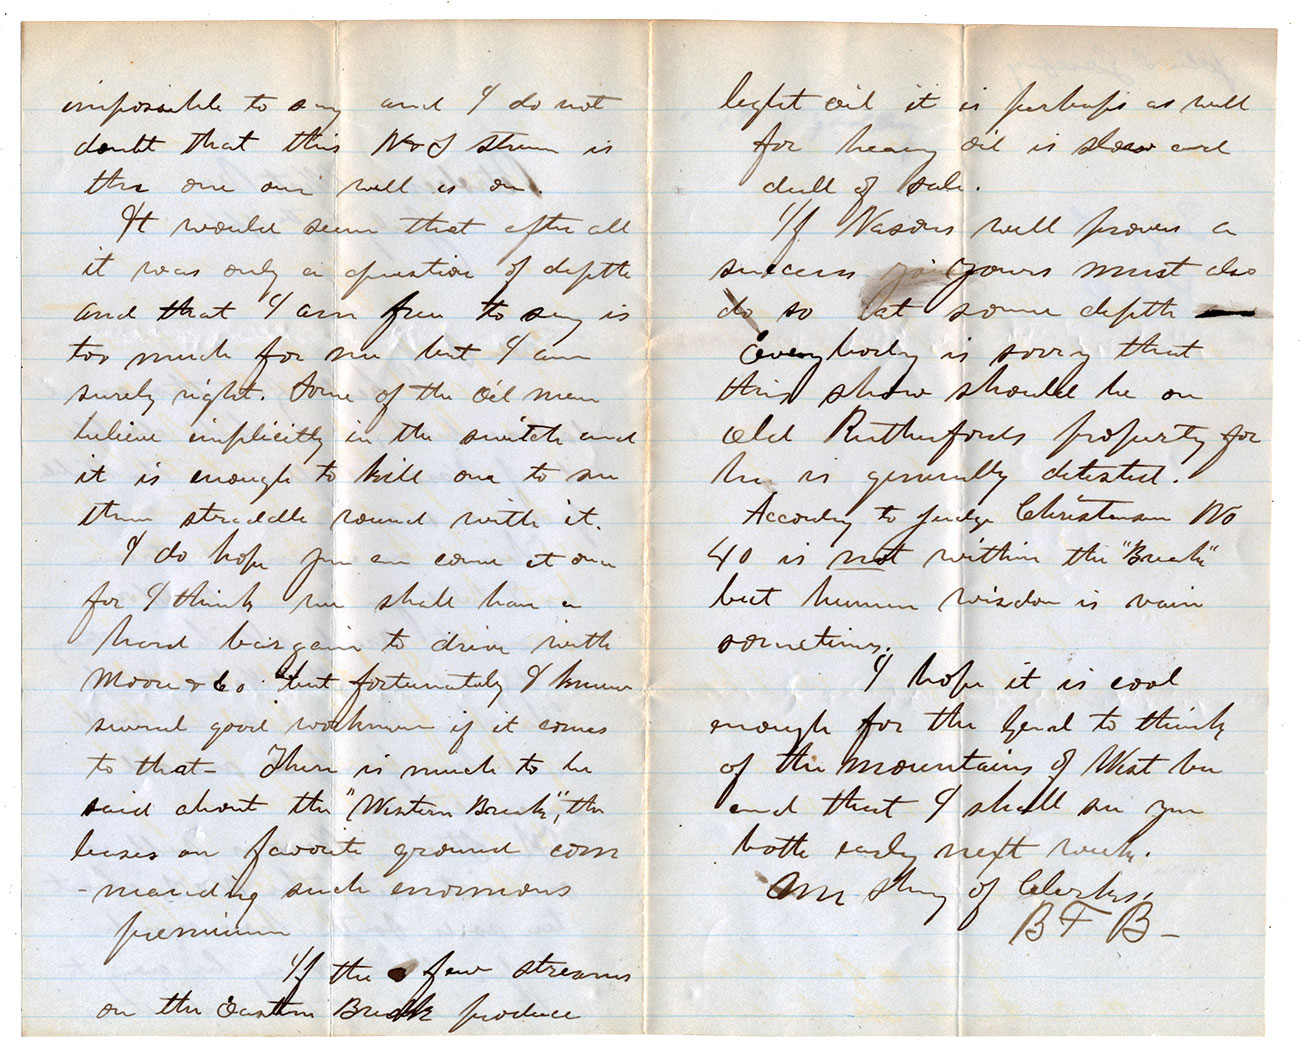 impossible to say and I do not
doubt that this N & S stream is
the one our well is on.
It would seem that after all
it was only a question of depth
and that I am free to say is
too much for me but I am
surely right. Some of the Oil men
believe implicitly in the switch and
it is enough to kill one to see
them straddle round with it.
I do hope you can come at once
for I think we shall have a
hard bargain to drive with
Moore & Co. but fortunately I know
several good workmen if it comes
to that - There is much to be
said about the "Western Break", the
leases on favorite ground com
-manding such enormous
premium
If the few streams
on the Eastern Break produce
light oil it is perhaps as well
for heavy oil is slow and
dull of sale.
If Nasons well proves a
success yours must also
do so at some depth
Everybody is sorry that
this show should be on
Old Rutherfords property for
he is generally detested.
According to Judge Christman No
40 is not within the "Break"
but human wisdom is vain
sometimes.
I hope it is cool
enough for the to think
of the mountains of West Va
and that I shall see you
both early next week.
Am of Clerks,
B F B -